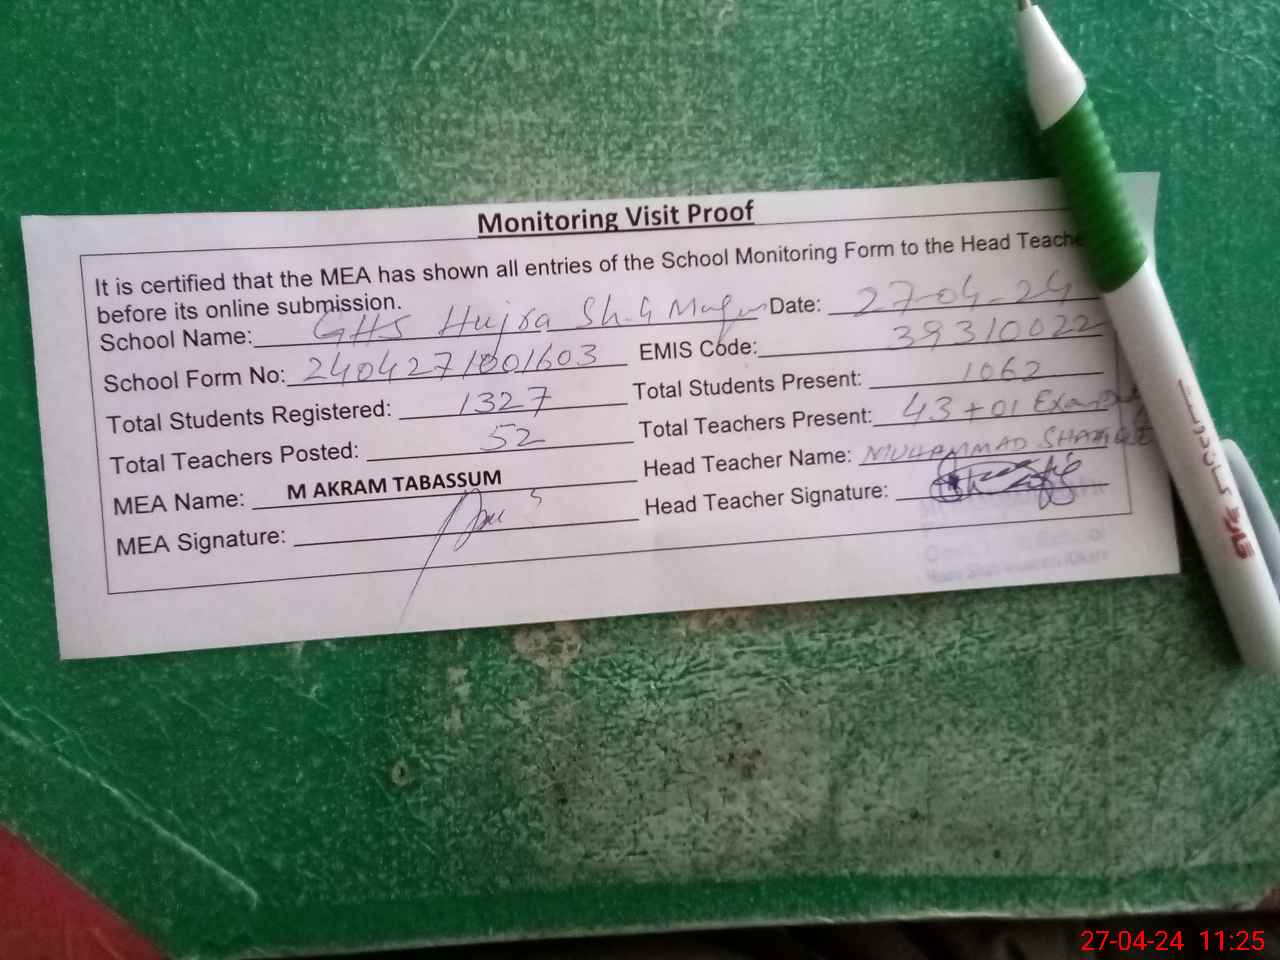 Monitoring Visit Proof
It is certified that the MEA has shown all entries of the School Monitoring Form to the Head Teache
before its online submission.
School Name: GHS Hujra Sh. Date: 27-04-24
School Form No: 2404271001603 EMIS Code: 39310022
Total Students Registered: 1327 Total Students Present: 1062
Total Teachers Posted: 52 Total Teachers Present: 43 + 01
MEA Name: M AKRAM TABASSUM Head Teacher Name: MUHAMMAD
MEA Signature: Head Teacher Signature:
کسان دوست
27-04-24 11:25